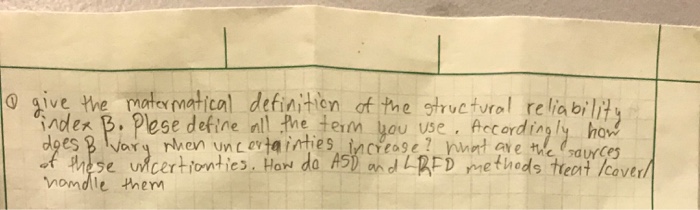 ① give the matermatical definition of the structural reliability
index B. Plese define all the term you use. Accordingly how
does B vary when uncertainties increase? what are the sources
of these uncertionties. How do ASD and LRFD methods treat /cover/
handle them